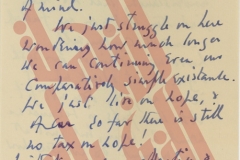 of mind.
We just struggle on here
wondering how much longer
we can continue even our
comparatively simple existence.
We just live on hope, &
after so far there is still
no tax on hope!